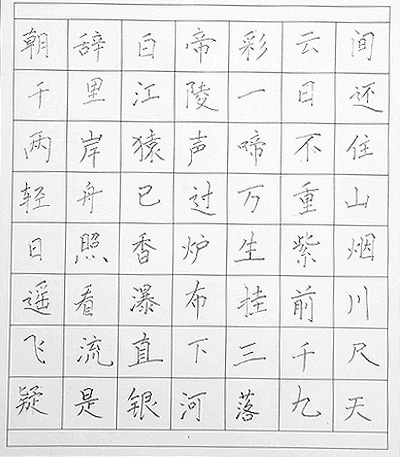 朝辞白帝彩云间
千里江陵一日还
两岸猿声啼不住
轻舟已过万重山
日照香炉生紫烟
遥看瀑布挂前川
飞流直下三千尺
疑是银河落九天